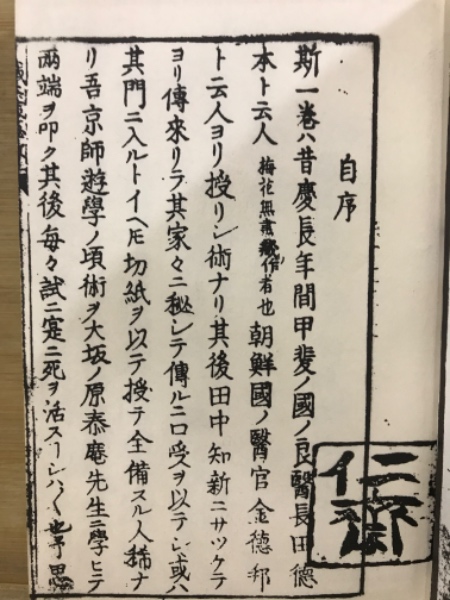 自序
斯一巻ハ昔慶長年間甲斐ノ國ノ良醫長田德
本ト云人梅花無盡蔵作者也朝鮮國ノ醫官金德邦
ト云人ヨリ授リシ術ナリ其後田中知新ニサツケテ
ヨリ傳來リテ其家々ニ秘シテ傳ルニ口受ヲ以テシ或ハ
其門ニ入ルトイヘ𪜈切紙ヲ以テ授テ全備スル人稀ナ
リ吾京師遊學ノ頃術ヲ大坂ノ原泰庵先生ニ學ヒテ
兩端ヲ叩ク其後毎々試ニ寔ニ死ヲ活スヿシハ〱也予思
仁術